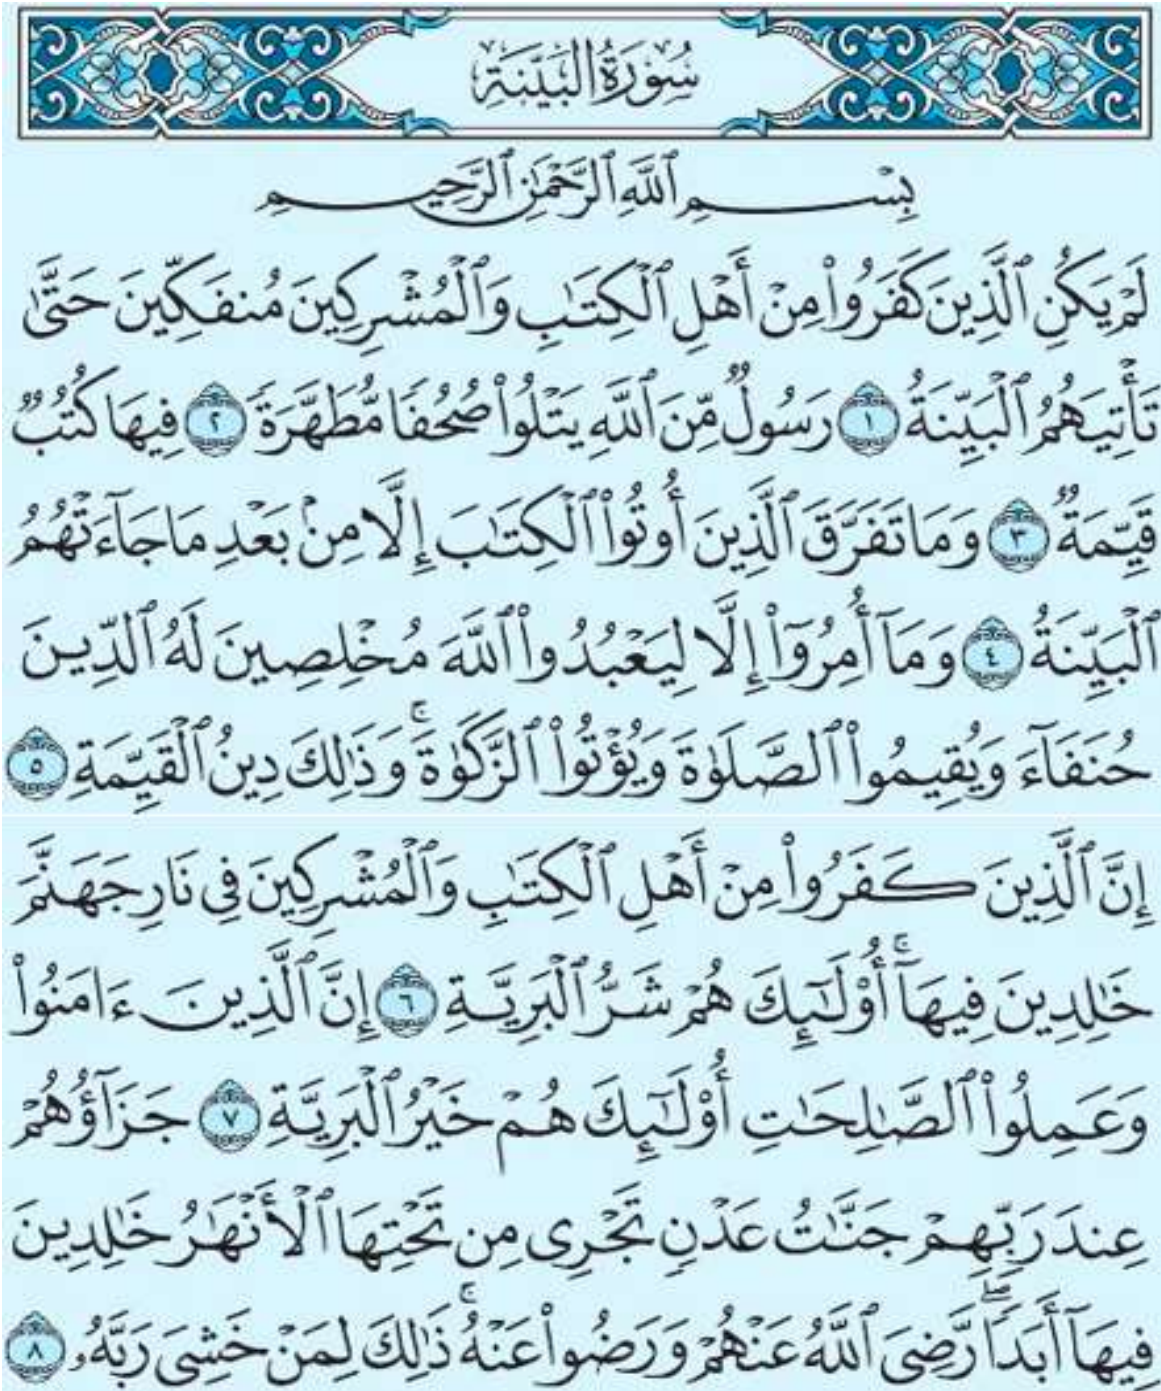 سُورَةُ الْبَيِّنَةِ
بِسْمِ ٱللَّهِ ٱلرَّحْمَٰنِ ٱلرَّحِيمِ
لَمْ يَكُنِ ٱلَّذِينَ كَفَرُوا۟ مِنْ أَهْلِ ٱلْكِتَٰبِ وَٱلْمُشْرِكِينَ مُنفَكِّينَ حَتَّىٰ
تَأْتِيَهُمُ ٱلْبَيِّنَةُ ١ رَسُولٌ مِّنَ ٱللَّهِ يَتْلُوا۟ صُحُفًا مُّطَهَّرَةً ٢ فِيهَا كُتُبٌ
قَيِّمَةٌ ٣ وَمَا تَفَرَّقَ ٱلَّذِينَ أُوتُوا۟ ٱلْكِتَٰبَ إِلَّا مِنۢ بَعْدِ مَا جَآءَتْهُمُ
ٱلْبَيِّنَةُ ٤ وَمَآ أُمِرُوٓا۟ إِلَّا لِيَعْبُدُوا۟ ٱللَّهَ مُخْلِصِينَ لَهُ ٱلدِّينَ
حُنَفَآءَ وَيُقِيمُوا۟ ٱلصَّلَوٰةَ وَيُؤْتُوا۟ ٱلزَّكَوٰةَ ۚ وَذَٰلِكَ دِينُ ٱلْقَيِّمَةِ ٥
إِنَّ ٱلَّذِينَ كَفَرُوا۟ مِنْ أَهْلِ ٱلْكِتَٰبِ وَٱلْمُشْرِكِينَ فِى نَارِ جَهَنَّمَ
خَٰلِدِينَ فِيهَآ ۚ أُو۟لَٰٓئِكَ هُمْ شَرُّ ٱلْبَرِيَّةِ ٦ إِنَّ ٱلَّذِينَ ءَامَنُوا۟
وَعَمِلُوا۟ ٱلصَّٰلِحَٰتِ أُو۟لَٰٓئِكَ هُمْ خَيْرُ ٱلْبَرِيَّةِ ٧ جَزَآؤُهُمْ
عِندَ رَبِّهِمْ جَنَّٰتُ عَدْنٍ تَجْرِى مِن تَحْتِهَا ٱلْأَنْهَٰرُ خَٰلِدِينَ
فِيهَآ أَبَدًا ۖ رَّضِىَ ٱللَّهُ عَنْهُمْ وَرَضُوا۟ عَنْهُ ۚ ذَٰلِكَ لِمَنْ خَشِىَ رَبَّهُۥ ٨